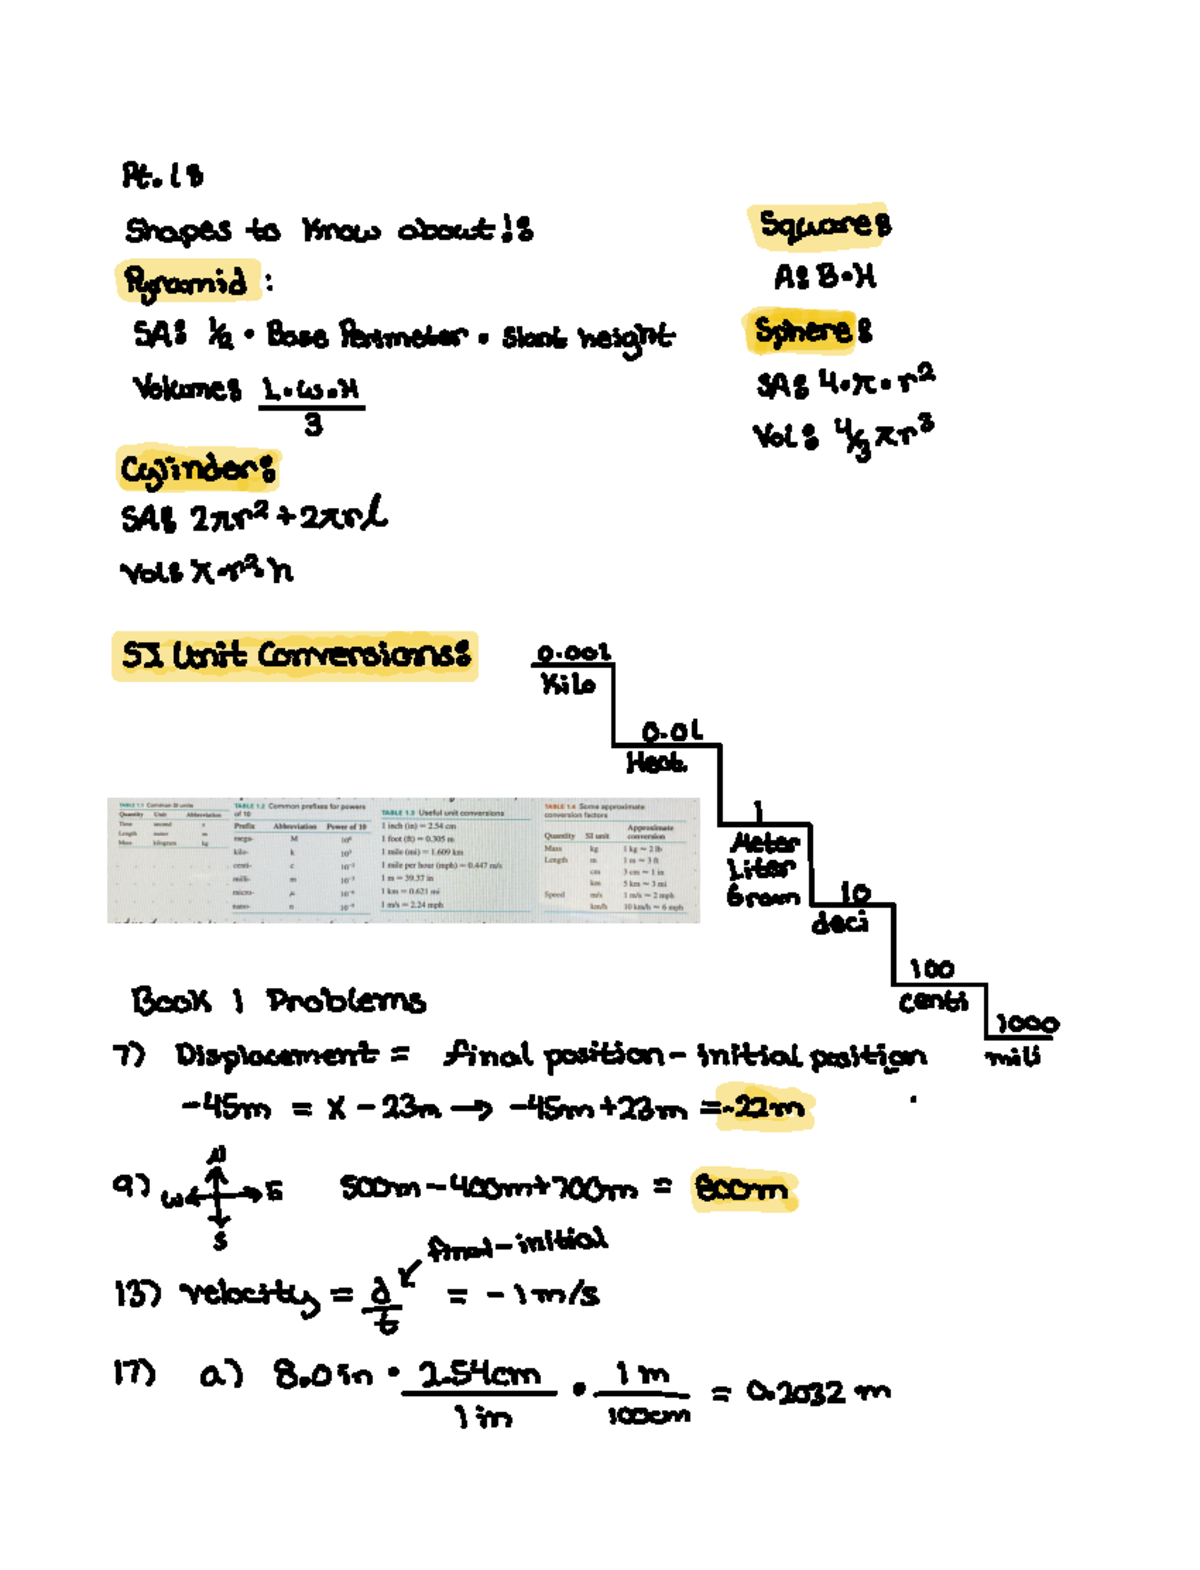 Pt. 1:
Shapes to Know about!:
Pyramid:
SA: 1/2 • Base Perimeter • Slant height
Volume: L•W•H
3
Cylinder:
SA: 2πr² + 2πrL
Vol: π•r²•h
Square:
A: B•H
Sphere:
SA: 4•π•r²
Vol: 4/3 πr³
SI Unit Conversions:
0.001
Kilo
0.01
Hect.
1
Meter
Liter
Gram
10
deci
100
centi
1000
mili
TABLE 1.1 Common SI units
Quantity Unit Abbreviation
Time second s
Length meter m
Mass kilogram kg
TABLE 1.2 Common prefixes for powers
of 10
Prefix Abbreviation Power of 10
mega- M 10⁶
kilo- k 10³
centi- c 10⁻²
milli- m 10⁻³
micro- μ 10⁻⁶
nano- n 10⁻⁹
TABLE 1.3 Useful unit conversions
1 inch (in) = 2.54 cm
1 foot (ft) = 0.305 m
1 mile (mi) = 1.609 km
1 mile per hour (mph) = 0.447 m/s
1 m = 39.37 in
1 km = 0.621 mi
1 m/s = 2.24 mph
TABLE 1.4 Some approximate
conversion factors
Quantity SI unit Approximate conversion
Mass kg 1 kg ≈ 2 lb
Length m 1 m ≈ 3 ft
cm 3 cm ≈ 1 in
km 5 km ≈ 3 mi
Speed m/s 1 m/s ≈ 2 mph
km/h 10 km/h ≈ 6 mph
Book 1 Problems
7) Displacement = final position - initial position
-45m = x - 23m → -45m + 23m = -22m
9) N W E S 500m - 400m + 700m = 800m
final - initial
13) velocity = d/t = -1 m/s
17) a) 8.0 in • 2.54cm/1 in • 1 m/100cm = 0.2032 m